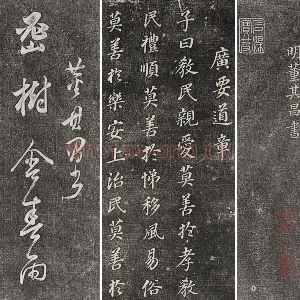 明董其昌書
廣要道章
子曰敎民親愛莫善於孝敎
民禮順莫善於悌移風易俗
莫善於樂安上治民莫善於
董其昌
密樹含春雨